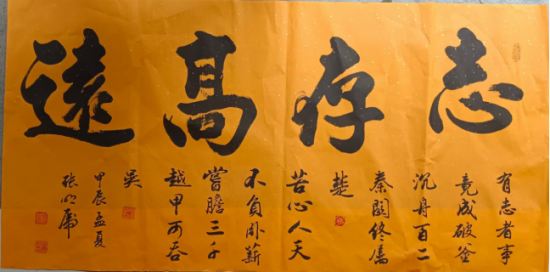 志存高遠
有志者事
竟成破釜
沉舟百二
秦關終屬
楚
苦心人天
不負卧薪
嘗膽三千
越甲可吞
吳
甲辰孟夏
張